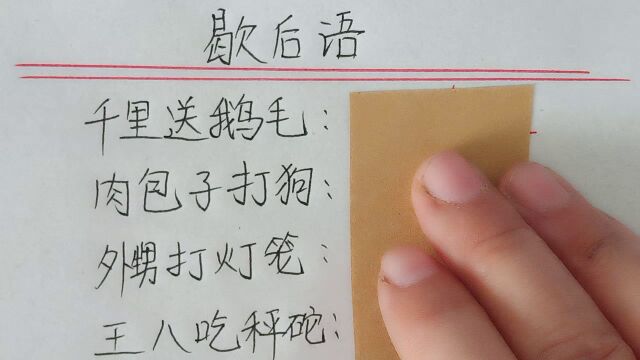 歇后语
千里送鹅毛：
肉包子打狗：
外甥打灯笼：
王八吃秤砣：